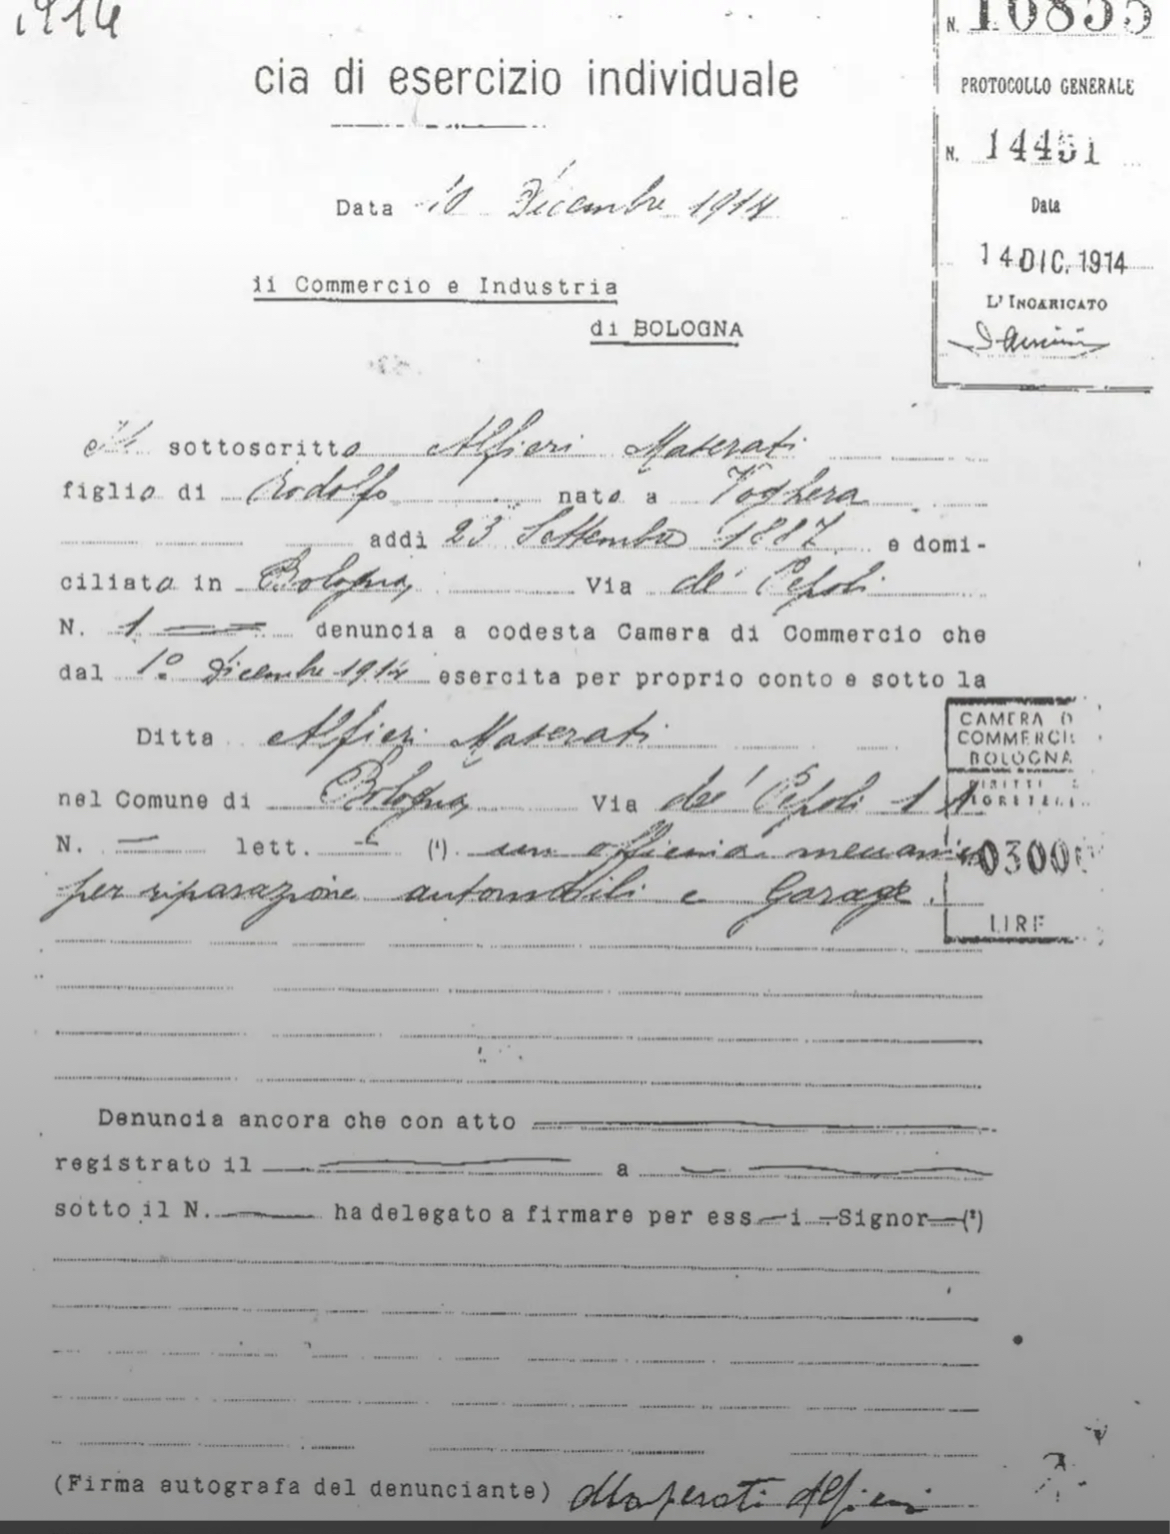 1914
N. 10855
cia di esercizio individuale
PROTOCOLLO GENERALE
N. 14451
Data 10 Dicembre 1914
Data
14 DIC. 1914
L'INCARICATO
di Commercio e Industria
di BOLOGNA
Il sottoscritto Alfieri Maserati
figlio di Rodolfo nato a Voghera
addì 23 Settembre 1887 e domi-
ciliato in Bologna Via de' Pepoli
N. 1 denuncia a codesta Camera di Commercio che
dal 1º Dicembre 1914 esercita per proprio conto e sotto la
Ditta Alfieri Maserati
CAMERA D
COMMERCIO
BOLOGNA
DIRITTI
nel Comune di Bologna Via de' Pepoli 1 A
N. — lett. — (¹) un officina meccanica
0300
per riparazione automobili e Garage.
LIRE
Denuncia ancora che con atto
registrato il a
sotto il N. ha delegato a firmare per ess i Signor (²)
(Firma autografa del denunciante) Maserati Alfieri